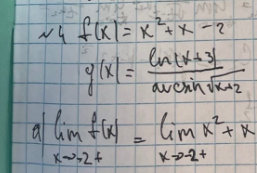 №4 f(x) = x² + x - 2
g(x) = ln(x+3) / arcsin√x+2
a) lim f(x) = lim x² + x
x→-2+ x→-2+